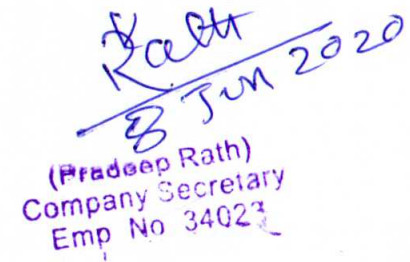 Rath
8 Jun 2020
(Pradeep Rath)
Company Secretary
Emp No 34023